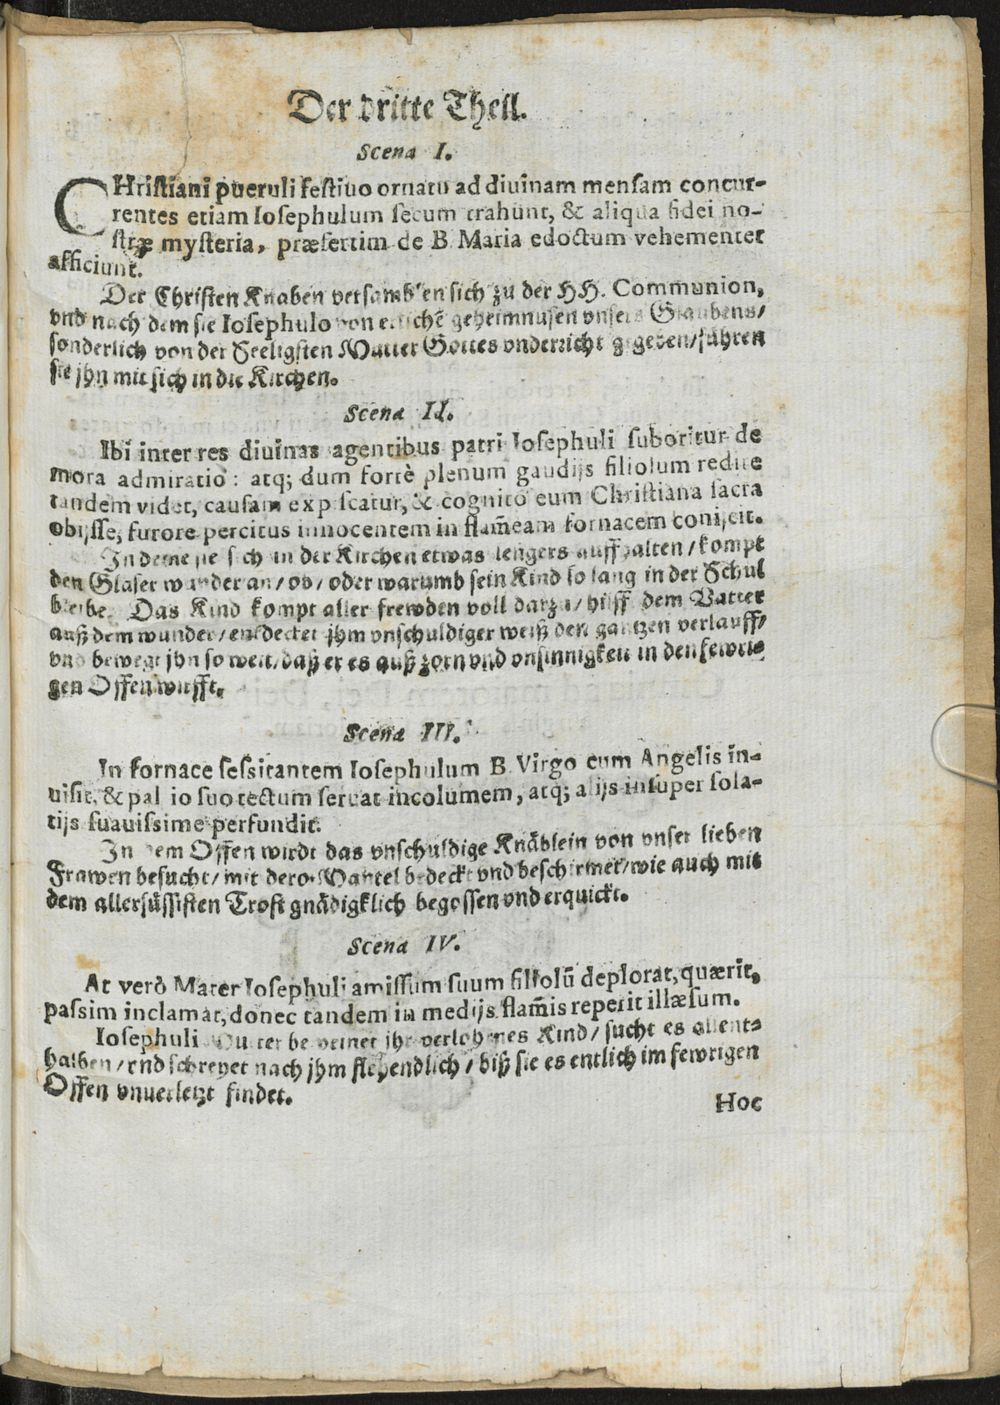 Der dritte Theil.
Scena I.
CHristiani pueruli festiuo ornatu ad diuinam mensam concur-
rentes etiam Iosephulum secum trahunt, & aliqua fidei no-
stræ mysteria, præsertim de B. Maria edoctum vehementer
afficiunt.
Der Christen Knaben versamblen sich zu der HH. Communion,
vnd nach dem sie Iosephulo von etlichē geheimnusen vnsers Glaubens/
sonderlich von der Seeligsten Mutter Gottes vnderricht gegeben/führen
sie jhn mit sich in die Kirchen.
Scena II.
Ibi inter res diuinas agentibus patri Iosephuli suboritur de
mora admiratio: atq; dum fortè plenum gaudijs filiolum redire
tandem videt, causam expiscatur, & cognito eum Christiana sacra
obijsse, furore percitus innocentem in flam̄eam fornacem conijcit.
In deme sie sich in der Kirchen etwas lengers auffhalten/kompt
den Glaser wunder an/ob/oder warumb sein Kind so lang in der Schul
bleibe. Das Kind kompt aller frewden voll darzu/hilff dem Vatter
auß dem wunder/entdecket jhm vnschuldiger weiß den gantzen verlauff/
vnd bewegt jhn so weit/daß er es auß zorn vnd vnsinnigkeit in den fewri-
gen Offen wirfft.
Scena III.
In fornace sessitantem Iosephulum B. Virgo cum Angelis in-
uisit, & pallio suo tectum seruat incolumem, atq; alijs insuper sola-
tijs suauissime perfundit.
In dem Offen wirdt das vnschuldige Knäblein von vnser lieben
Frawen besucht/mit dero Mantel bedeckt vnd beschirmet/wie auch mit
dem allersüssisten Trost gnädigklich begossen vnd erquickt.
Scena IV.
At verò Mater Iosephuli amissum suum filiolū deplorat, quærit,
passim inclamat, donec tandem in medijs flam̄is reperit illæsum.
Iosephuli Mutter beweinet jhr verlohrnes Kind/sucht es allent-
halben/vnd schreyet nach jhm flehendlich/biß sie es entlich im fewrigen
Offen vnuerletzt findet.
Hoc